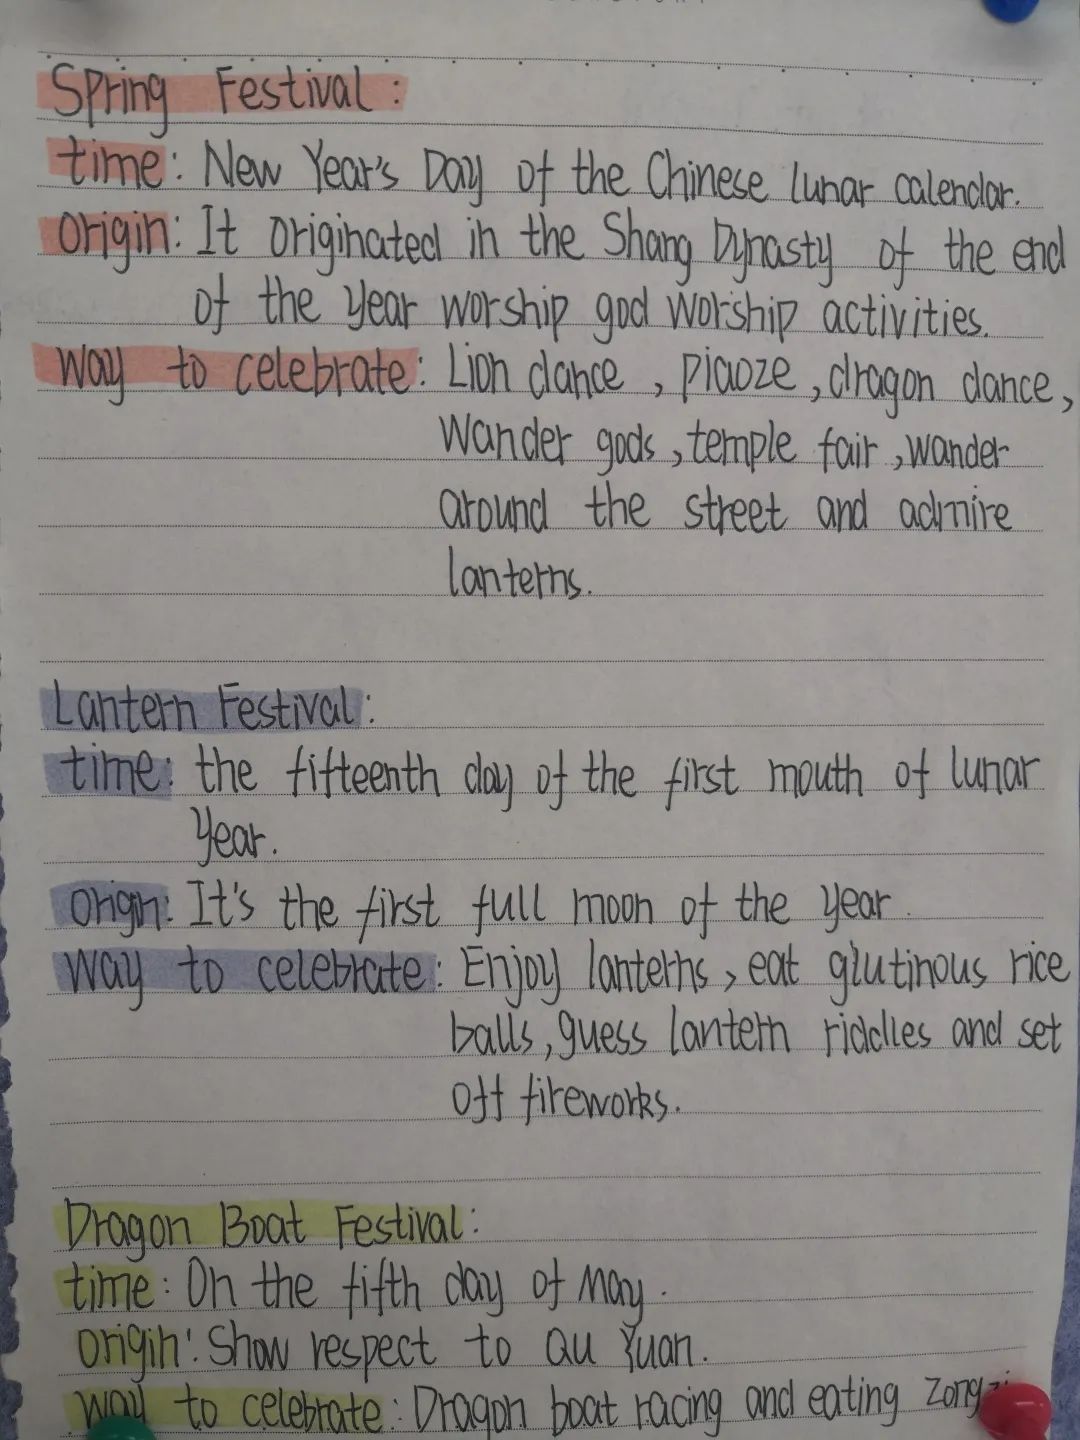 Spring Festival:
time: New Year's Day of the Chinese lunar calendar.
origin: It originated in the Shang Dynasty of the end
of the year worship god worship activities.
way to celebrate: Lion dance, piaoze, dragon dance,
wander gods, temple fair, wander
around the street and admire
lanterns.
Lantern Festival:
time: the fifteenth day of the first mouth of lunar
year.
origin: It's the first full moon of the year.
way to celebrate: Enjoy lanterns, eat glutinous rice
balls, guess lantern riddles and set
off fireworks.
Dragon Boat Festival:
time: On the fifth day of May.
origin: Show respect to Qu Yuan.
way to celebrate: Dragon boat racing and eating zongzi